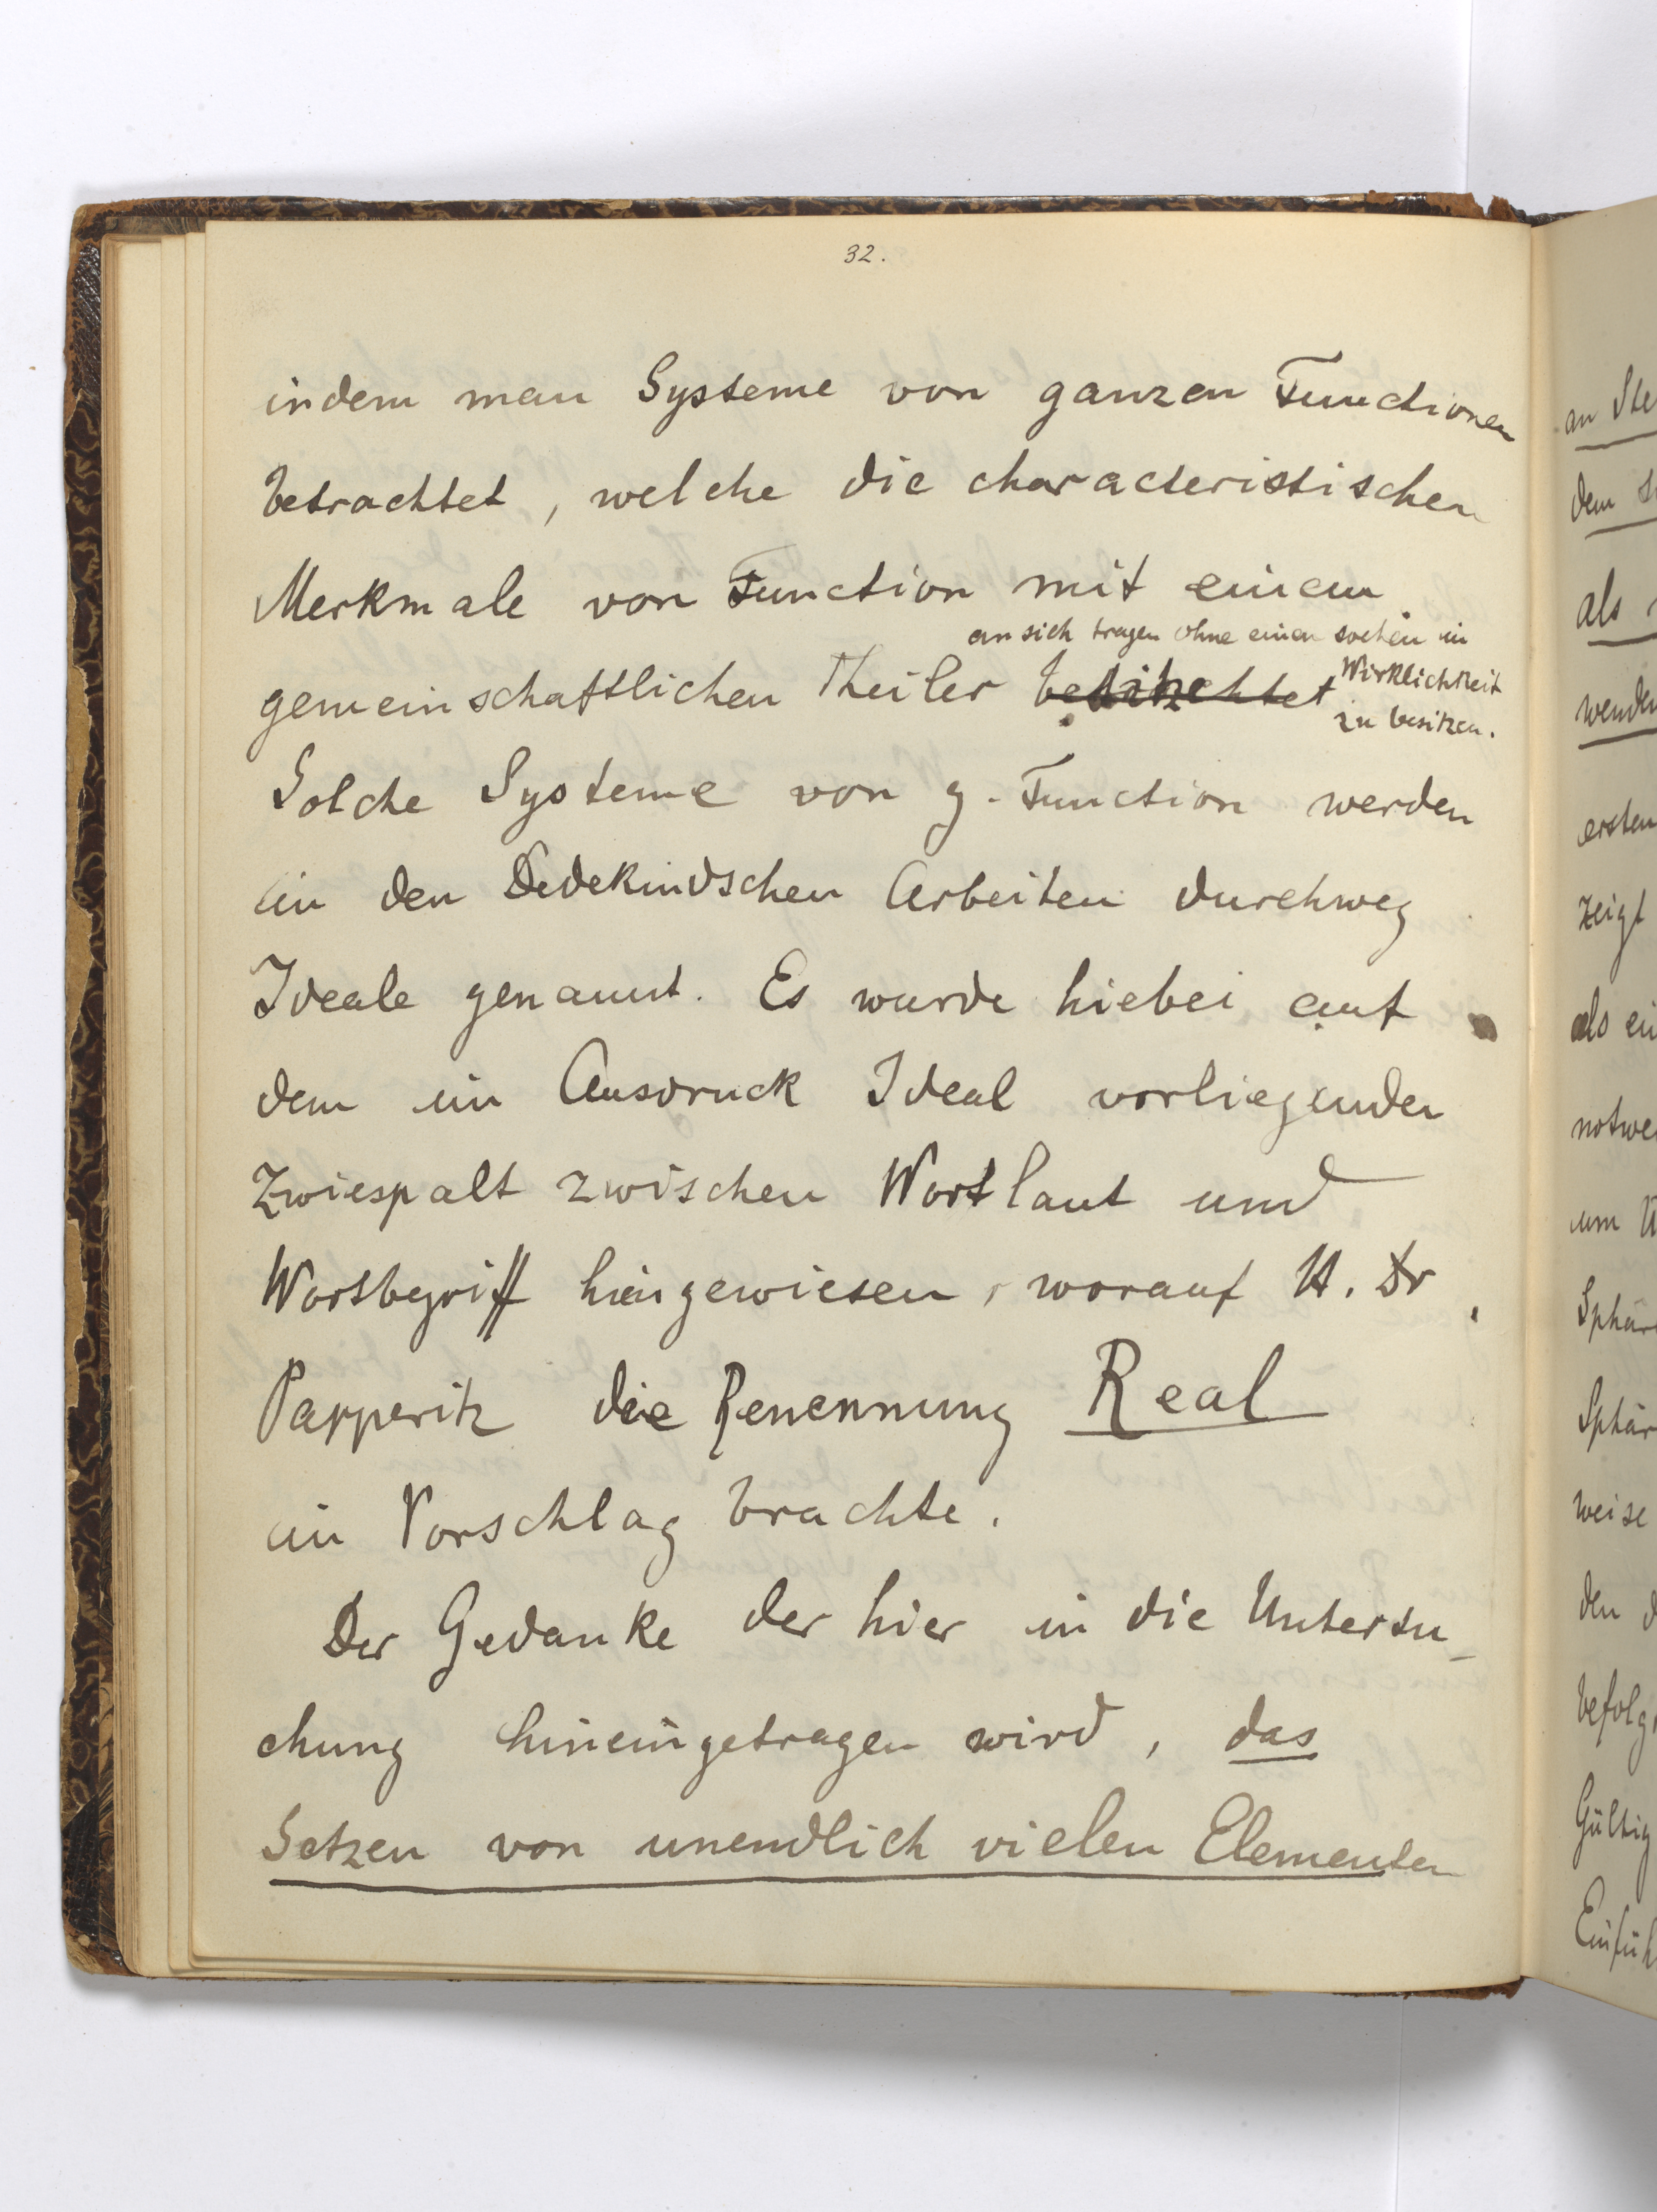 32.
indem man Systeme von ganzen Functionen
betrachtet, welche die characteristischen
Merkmale von Function mit einem
an sich tragen ohne einen solchen in
gemeinschaftlichen Theiler
Wirklichkeit
zu besitzen.
Solche Systeme von g. Function werden
in den Dedekindschen Arbeiten durchweg
Ideale genannt. Es wurde hiebei auf
dem im Ausdruck Ideal vorliegenden
Zwiespalt zwischen Wortlaut und
Wortbegriff hingewiesen, worauf H. Dr.
Papperitz die Benennung Real
in Vorschlag brachte.
Der Gedanke der hier in die Untersu-
chung hineingetragen wird, das
Setzen von unendlich vielen Elementen
an Ste
dem
als
wenden
ersten
zeigt
als ei
notwe
um
Sphär
Sphär
weise
den d
befolg
Gültig
Einfüh